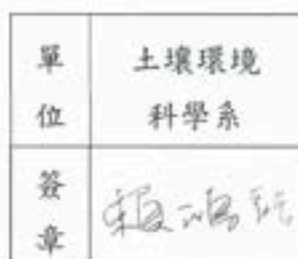 單位
土壤環境
科學系
簽章
賴鴻